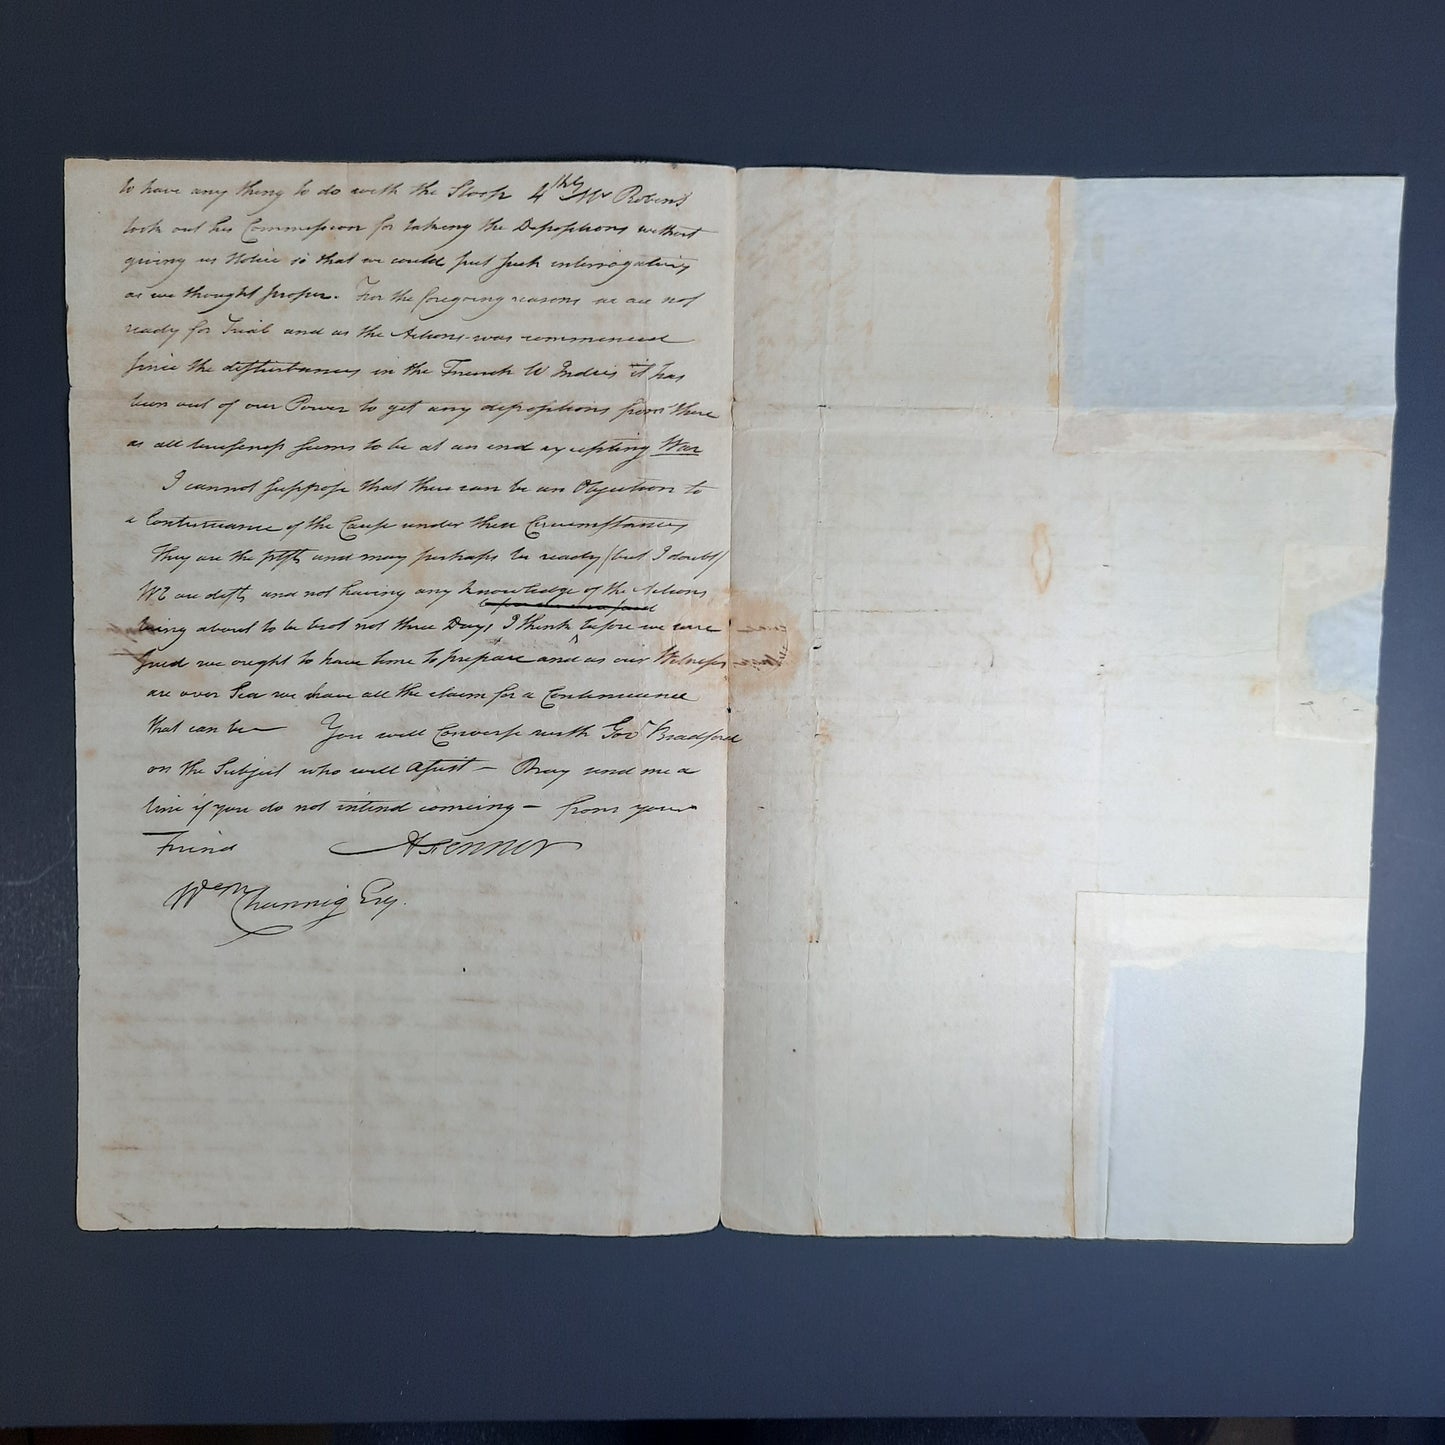 to have any thing to do with the Sloop 4thly Mr Robins
took out his Commission for taking the Depositions without
giving us Notice so that we could put such interrogatives
as we thought proper. For the foregoing reasons we are not
ready for Trial and as the Actions was commenced
since the disturbances in the French W Indies it has
been out of our Power to get any depositions from there
as all business seems to be at an end excepting War
I cannot suppose that there can be an Objection to
a Continuance of the Cause under these Circumstances
They are the pltfs and may perhaps be ready (but I doubt)
We are defts and not having any knowledge of the Actions
being about to be brot not three Days I think before we were
sued we ought to have time to prepare and as our Witnesses
are over Sea we have all the claim for a Continuance
that can be — You will Converse with Govr Bradford
on the Subject who will assist — Pray send me a
line if you do not intend comeing — from your
Friend
Wm Channing Esq.